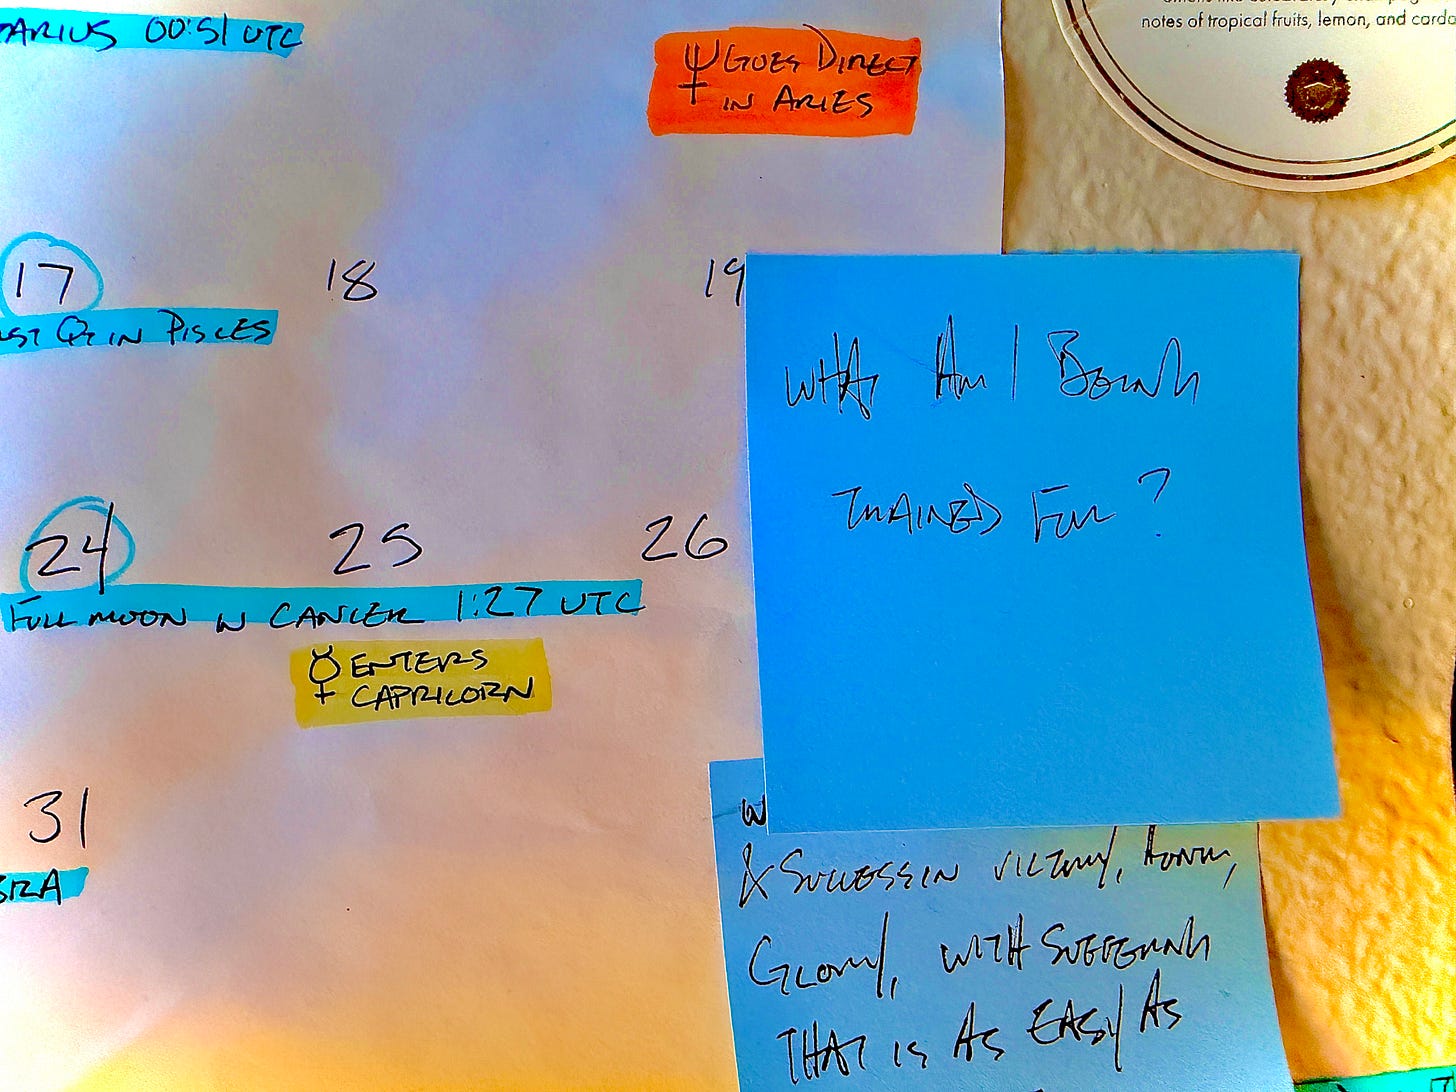 TARIUS 00:51 UTC
♆ GOES DIRECT
IN ARIES
notes of tropical fruits, lemon, and
17
18
19
IN PISCES
24
25
26
FULL MOON IN CANCER 1:27 UTC
☿ ENTERS
CAPRICORN
31
WHAT AM I BEING
TRAINED FOR?
& SUCCESS IN VICTORY, HONOR,
GLORY, WITH SUFFERING
THAT IS AS EASY AS